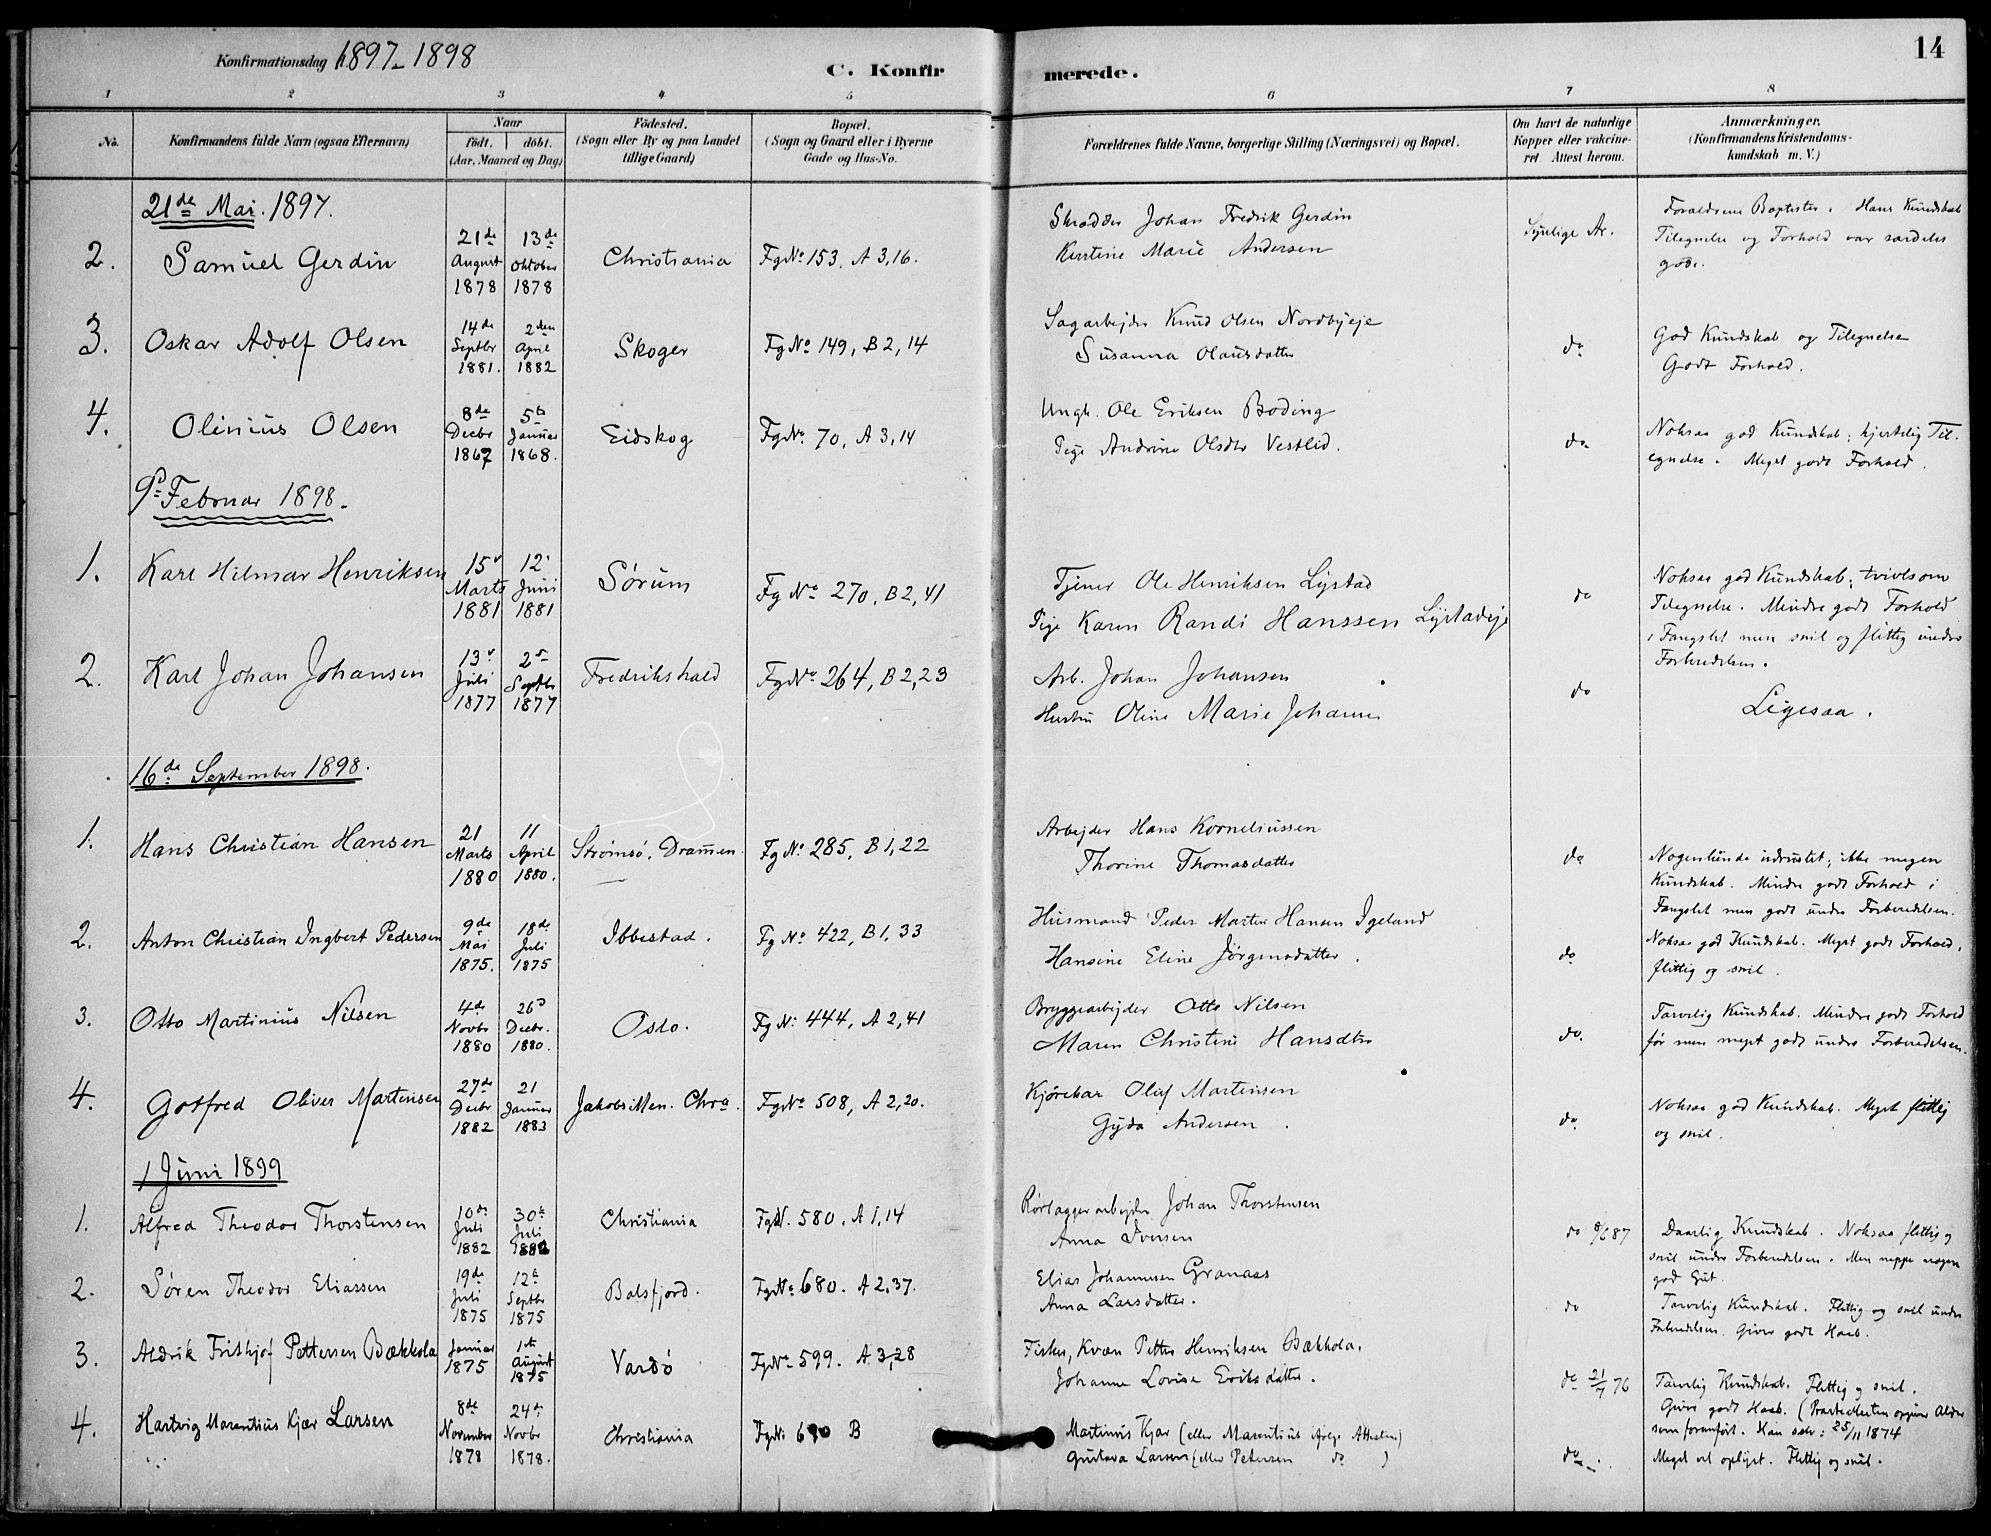 Konfirmationsdag 1897-1898
C. Konfirmerede.
14
1 2 3 4 5 6 7 8
No.
Konfirmandens fulde Navn (ogsaa Efternavn)
Naar
født. døbt.
(Aar, Maaned og Dag)
Fødested.
(Sogn eller By og paa Landet
tillige Gaard)
Bopæl.
(Sogn og Gaard eller i Byerne
Gade og Hus-No.
Forældrenes fulde Navne, borgerlige Stilling (Næringsvei) og Bopæl.
Om havt de naturlige
Kopper eller vakcine-
ret. Attest herom.
Anmærkninger.
(Konfirmandens Kristendoms-
kundskab m. V.)
21de Mai. 1897.
2. Samuel Gerdin
21de August 1878
13de Oktober 1878
Christiania
Fg No 153. A 3,16.
Skrædder Johan Fredrik Gerdin
Kirstine Marie Andersen
Synlige Ar.
Forældrene Baptister. Hans Kundskab
Tilegnelse og Forhold var særdeles
gode.
3. Oskar Adolf Olsen
14de Septbr 1881.
2den April 1882
Skoger
Fg No 149, B 2, 14
Sagarbejder Knud Olsen Nordbyeje
Susanna Olausdatter
do
God Kundskab og Tilegnelse
Godt Forhold.
4. Olinius Olsen
8de Decbr 1867
5te Januar 1868.
Eidskog
Fg No. 70, A 3, 14
Ungk. Ole Eriksen Boding
Pige Andrine Olsdtr Vestlid.
do
Noksaa god Kundskab; hjertelig Til-
egnelse. Meget godt Forhold.
9de Februar 1898.
1. Karl Hilmar Henriksen
15 Marts 1881
12 Juni 1881
Sørum
Fg No 270, B 2, 41
Tjener Ole Henriksen Lystad
Pige Karen Randi Hanssen Lystadeje
do
Noksaa god Kundskab; tvivlsom
Tilegnelse. Mindre godt Forhold
i Fængslet men snil og flittig under
Forberedelsen.
2. Karl Johan Johansen
13 Juli 1877
2 Septbr 1877
Fredrikshald
Fg No 264, B 2,23
Arb. Johan Johansen
Hustru Oline Marie Johansen
do
Ligesaa.
16de September 1898.
1. Hans Christian Hansen
21 Marts 1880
11 April 1880.
Strømsø, Drammen.
Fg No. 285, B 1,22
Arbejder Hans Korneliussen
Thorine Thomasdatter
do
Nogenlunde udrustet; ikke megen
Kundskab. Mindre godt Forhold i
Fængslet men godt under Forberedelsen.
2. Anton Christian Ingbert Pedersen
9de Mai 1875.
18de Juli 1875
Ibbestad.
Fg No. 422, B 1, 33
Husmand Peder Martin Hansen Igeland
Hansine Eline Jørgensdatter.
do
Noksaa god Kundskab. Meget godt Forhold,
flittig og snil.
3. Otto Martinius Nilsen
4de Novbr 1880
26 Decbr. 1880.
Oslo.
Fg No: 444, A 2,41
Bryggearbejder Otto Nilsen
Maren Christine Hansdtr
do.
Tarvelig Kundskab. Mindre godt Forhold
før men meget godt under Forberedelsen.
4. Gotfred Oliver Martinsen
27de Decbr 1882
21 Januar 1883
Jakobs Men. Chra.
Fg No. 508, A 2,20.
Kjørekar Oluf Martinsen
Gyda Andersen.
do.
Noksaa god Kundskab. Meget flittig
og snil.
1 Juni 1899
1. Alfred Theodor Thorstensen
10de Juli 1882
30te Juli 1882
Christiania
Fg N. 580. A 1,14
Rørlæggerarbejder Johan Thorstensen
Anna Iversen
do 9/6 87
Daarlig Kundskab. Noksaa flittig og
snil under Forberedelsen. Men neppe nogen
god Gut.
2. Søren Theodor Eliassen
19de Juli 1875
12te Septbr 1875
Balsfjord.
Fg No. 680. A 2,37.
Elias Johannesen Granaas
Anna Larsdatter.
do
Tarvelig Kundskab. Flittig og snil under
Forberedelsen. Giver godt Haab.
3. Aldrik Frithjof Pettersen Bækkola
Januar 1875
1ste August 1875
Vardø
Fg No. 599. A 3,28
Fisker, Kvæn Petter Henriksen Bækkola.
Johanne Lovise Eriksdatter.
do 21/7 76
Tarvelig Kundskab. Flittig og snil.
Giver godt Haab. (Præsteattesten opgiver Alder
som foranført. Han selv: 25/11 1874
4. Hartvig Marentius Kjær Larsen
8de November 1878
24de Novbr 1878.
Christiania
Fg No 690 B
Martinus Kjær (eller Marentius ifølge Attesten)
Gustava Larsen (eller Petersen do)
do
Meget vel oplyst. Flittig og snil.